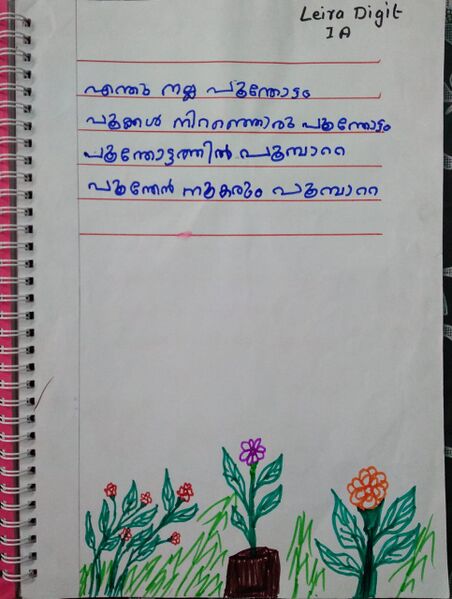 Leira Digit
I A
എന്തു നല്ല പൂന്തോട്ടം
പൂക്കൾ നിറഞ്ഞൊരു പൂന്തോട്ടം
പൂന്തോട്ടത്തിൽ പൂമ്പാറ്റ
പൂന്തേൻ നുകരും പൂമ്പാറ്റ